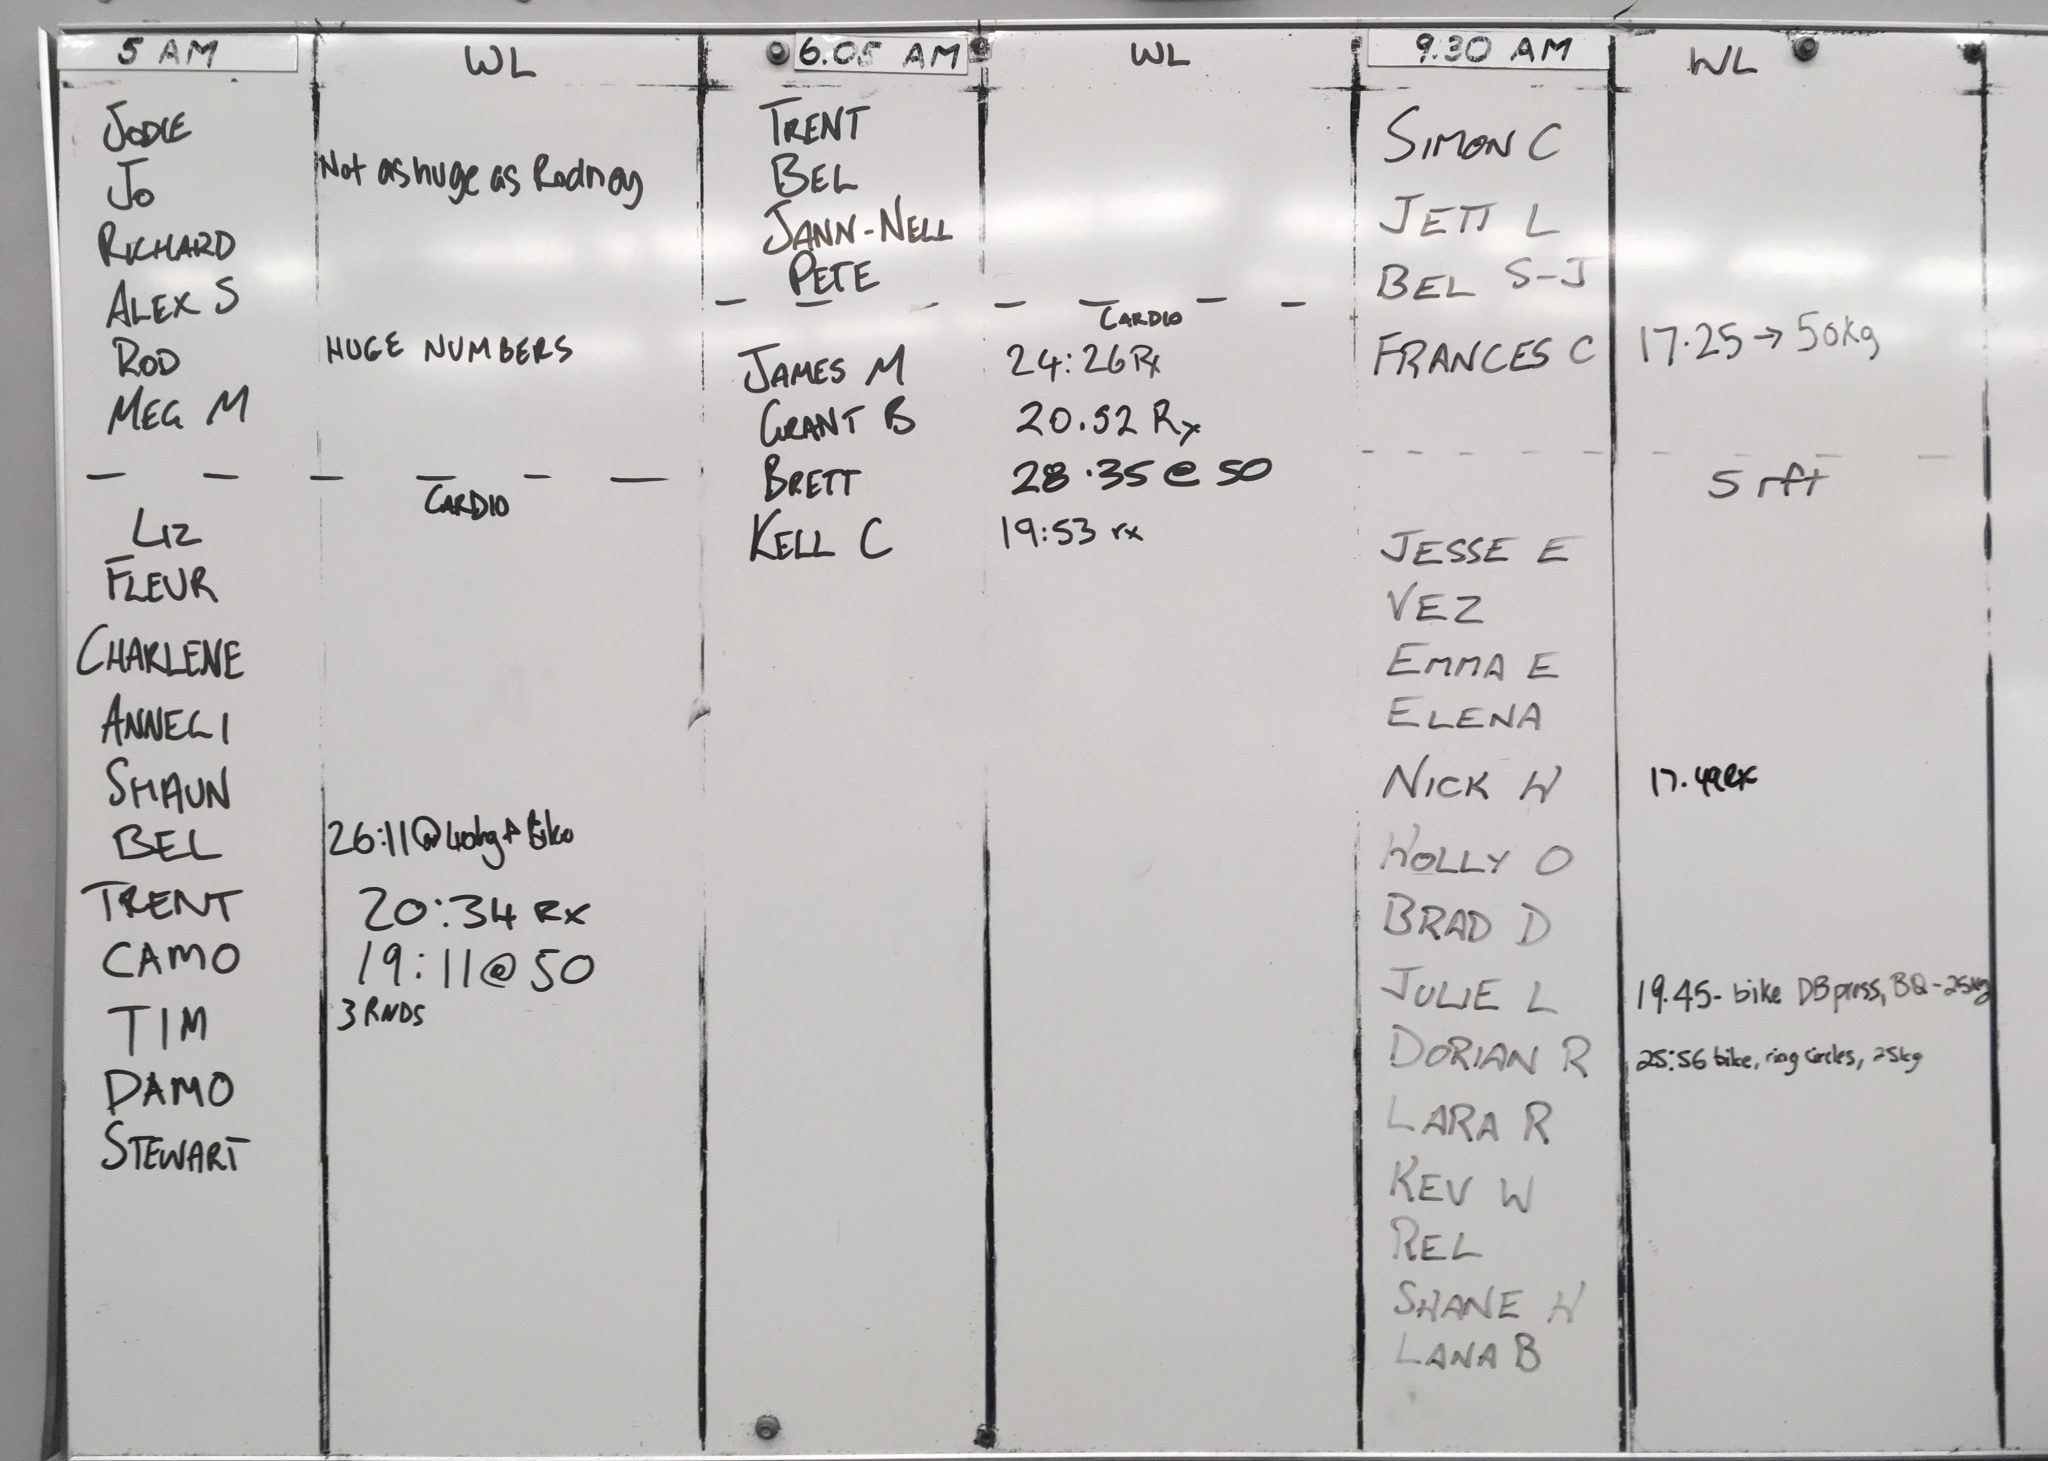 5 AM
WL
JODIE
JO
Not as huge as Rodney
RICHARD
ALEX S
ROD
HUGE NUMBERS
MEG M
CARDIO
LIZ
FLEUR
CHARLENE
ANNELI
SHAUN
BEL
26:11 @ 40kg + bike
TRENT
20:34 RX
CAMO
19:11 @ 50
TIM
3 RNDS
DAMO
STEWART
6.05 AM
WL
TRENT
BEL
JANN-NELL
PETE
CARDIO
JAMES M
24:26 Rx
GRANT B
20.52 Rx
BRETT
28.35 @ 50
KELL C
19:53 rx
9.30 AM
WL
SIMON C
JETT L
BEL S-J
FRANCES C
17.25 → 50kg
5 rft
JESSE E
VEZ
EMMA E
ELENA
NICK W
17.49 Rx
HOLLY O
BRAD D
JULIE L
19.45 - bike DB press, BQ - 25kg
DORIAN R
25:56 bike, ring circles, 25kg
LARA R
KEV W
REL
SHANE W
LANA B